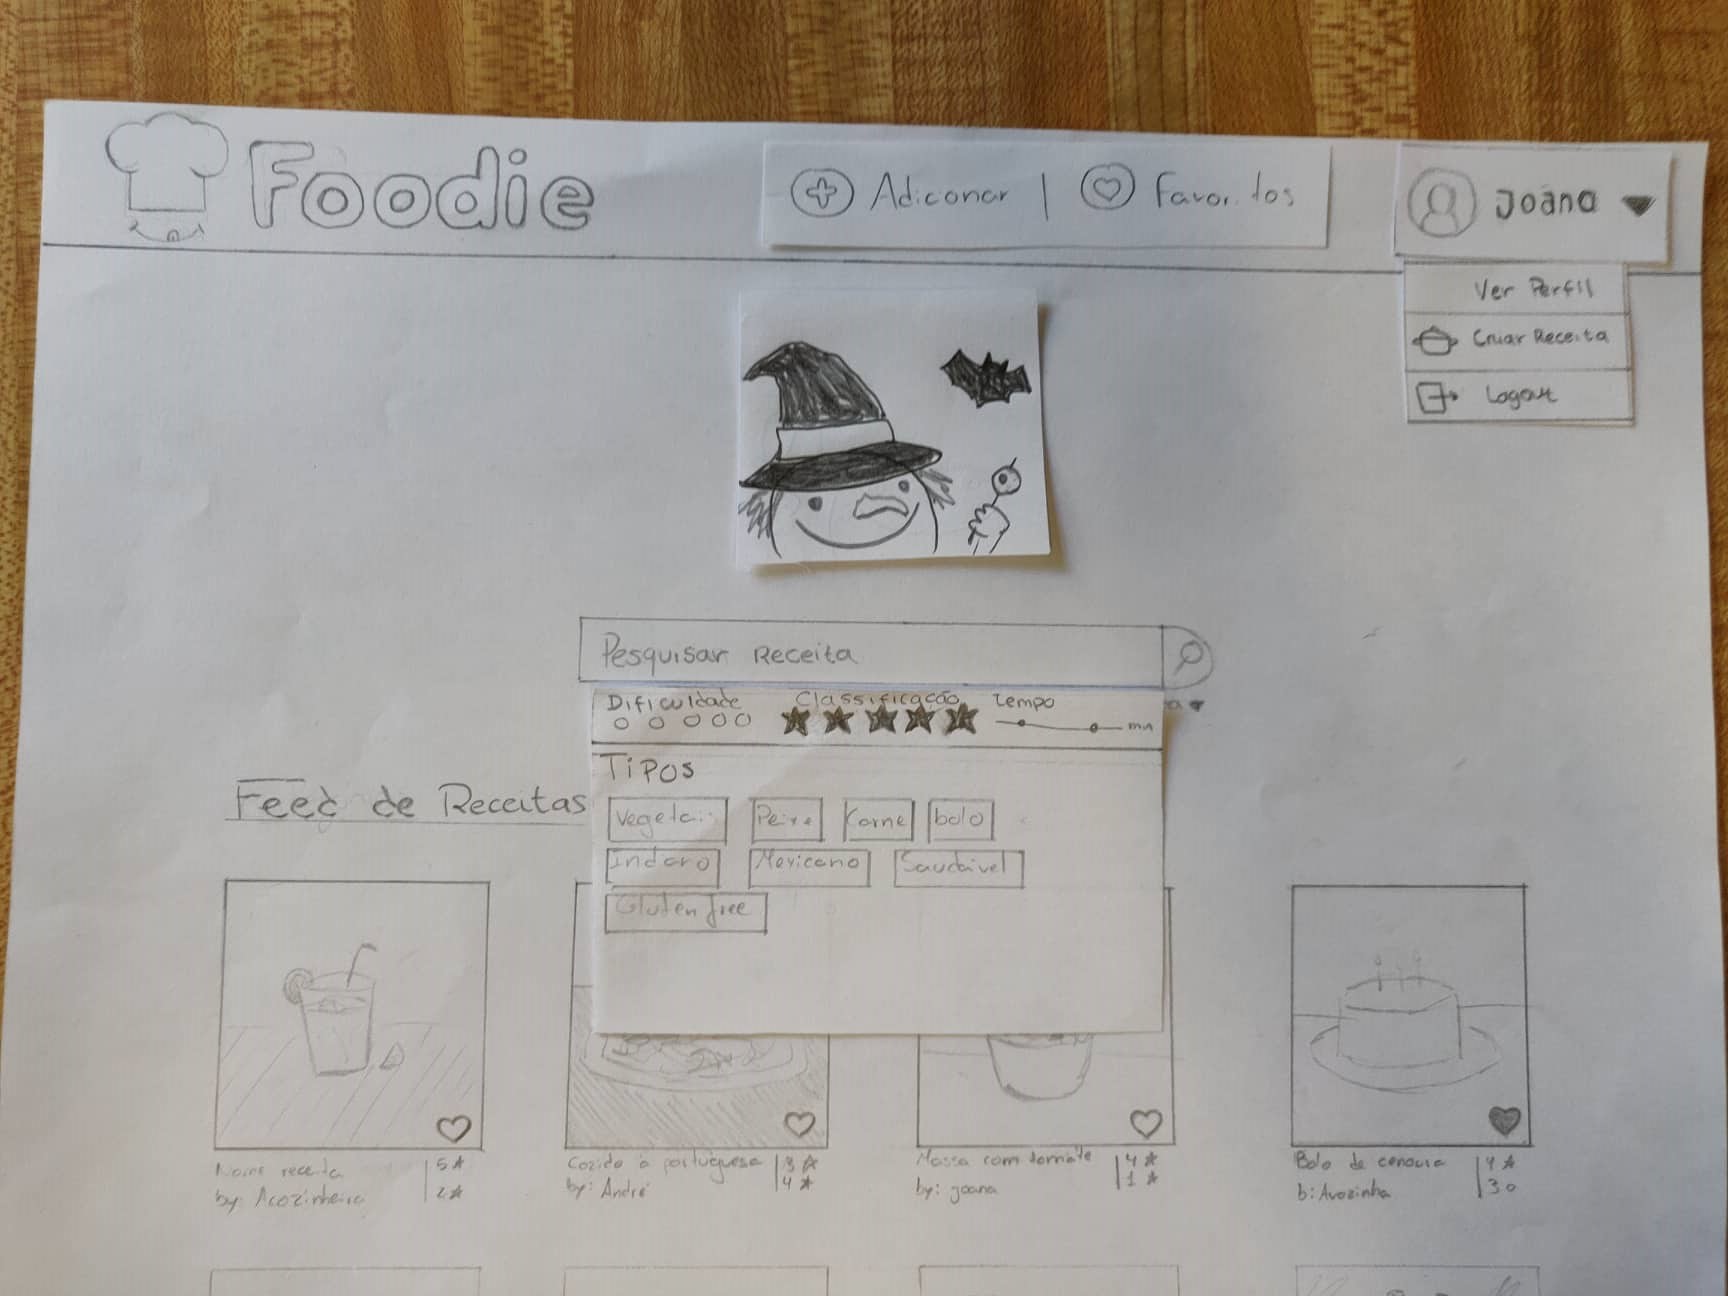 Foodie
Adiconar | Favoritos
Joana
Ver Perfil
Criar Receita
Logout
Pesquisar Receita
Dificuldade Classificação tempo
min
Tipos
Peixe Carne bolo
Indiano Mexicano Saudavel
Gluten free
Feed de Receitas
Nome receita 5
by: Acozinheira 2
Cozido à portuguesa 3
by: André 4
Massa com tomate 4
by: joana 1
Bolo de cenoura 4
b: Avozinha 3